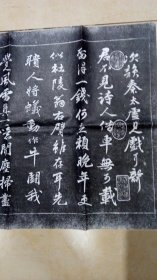 次韻秦太虛見戲耳聾
君不見詩人借車無可載
留得一錢何足賴晚年更
似杜陵翁右臂雖存耳先
聵人將蟻動作牛鬥我
覺風雷真一噫聞塵掃盡